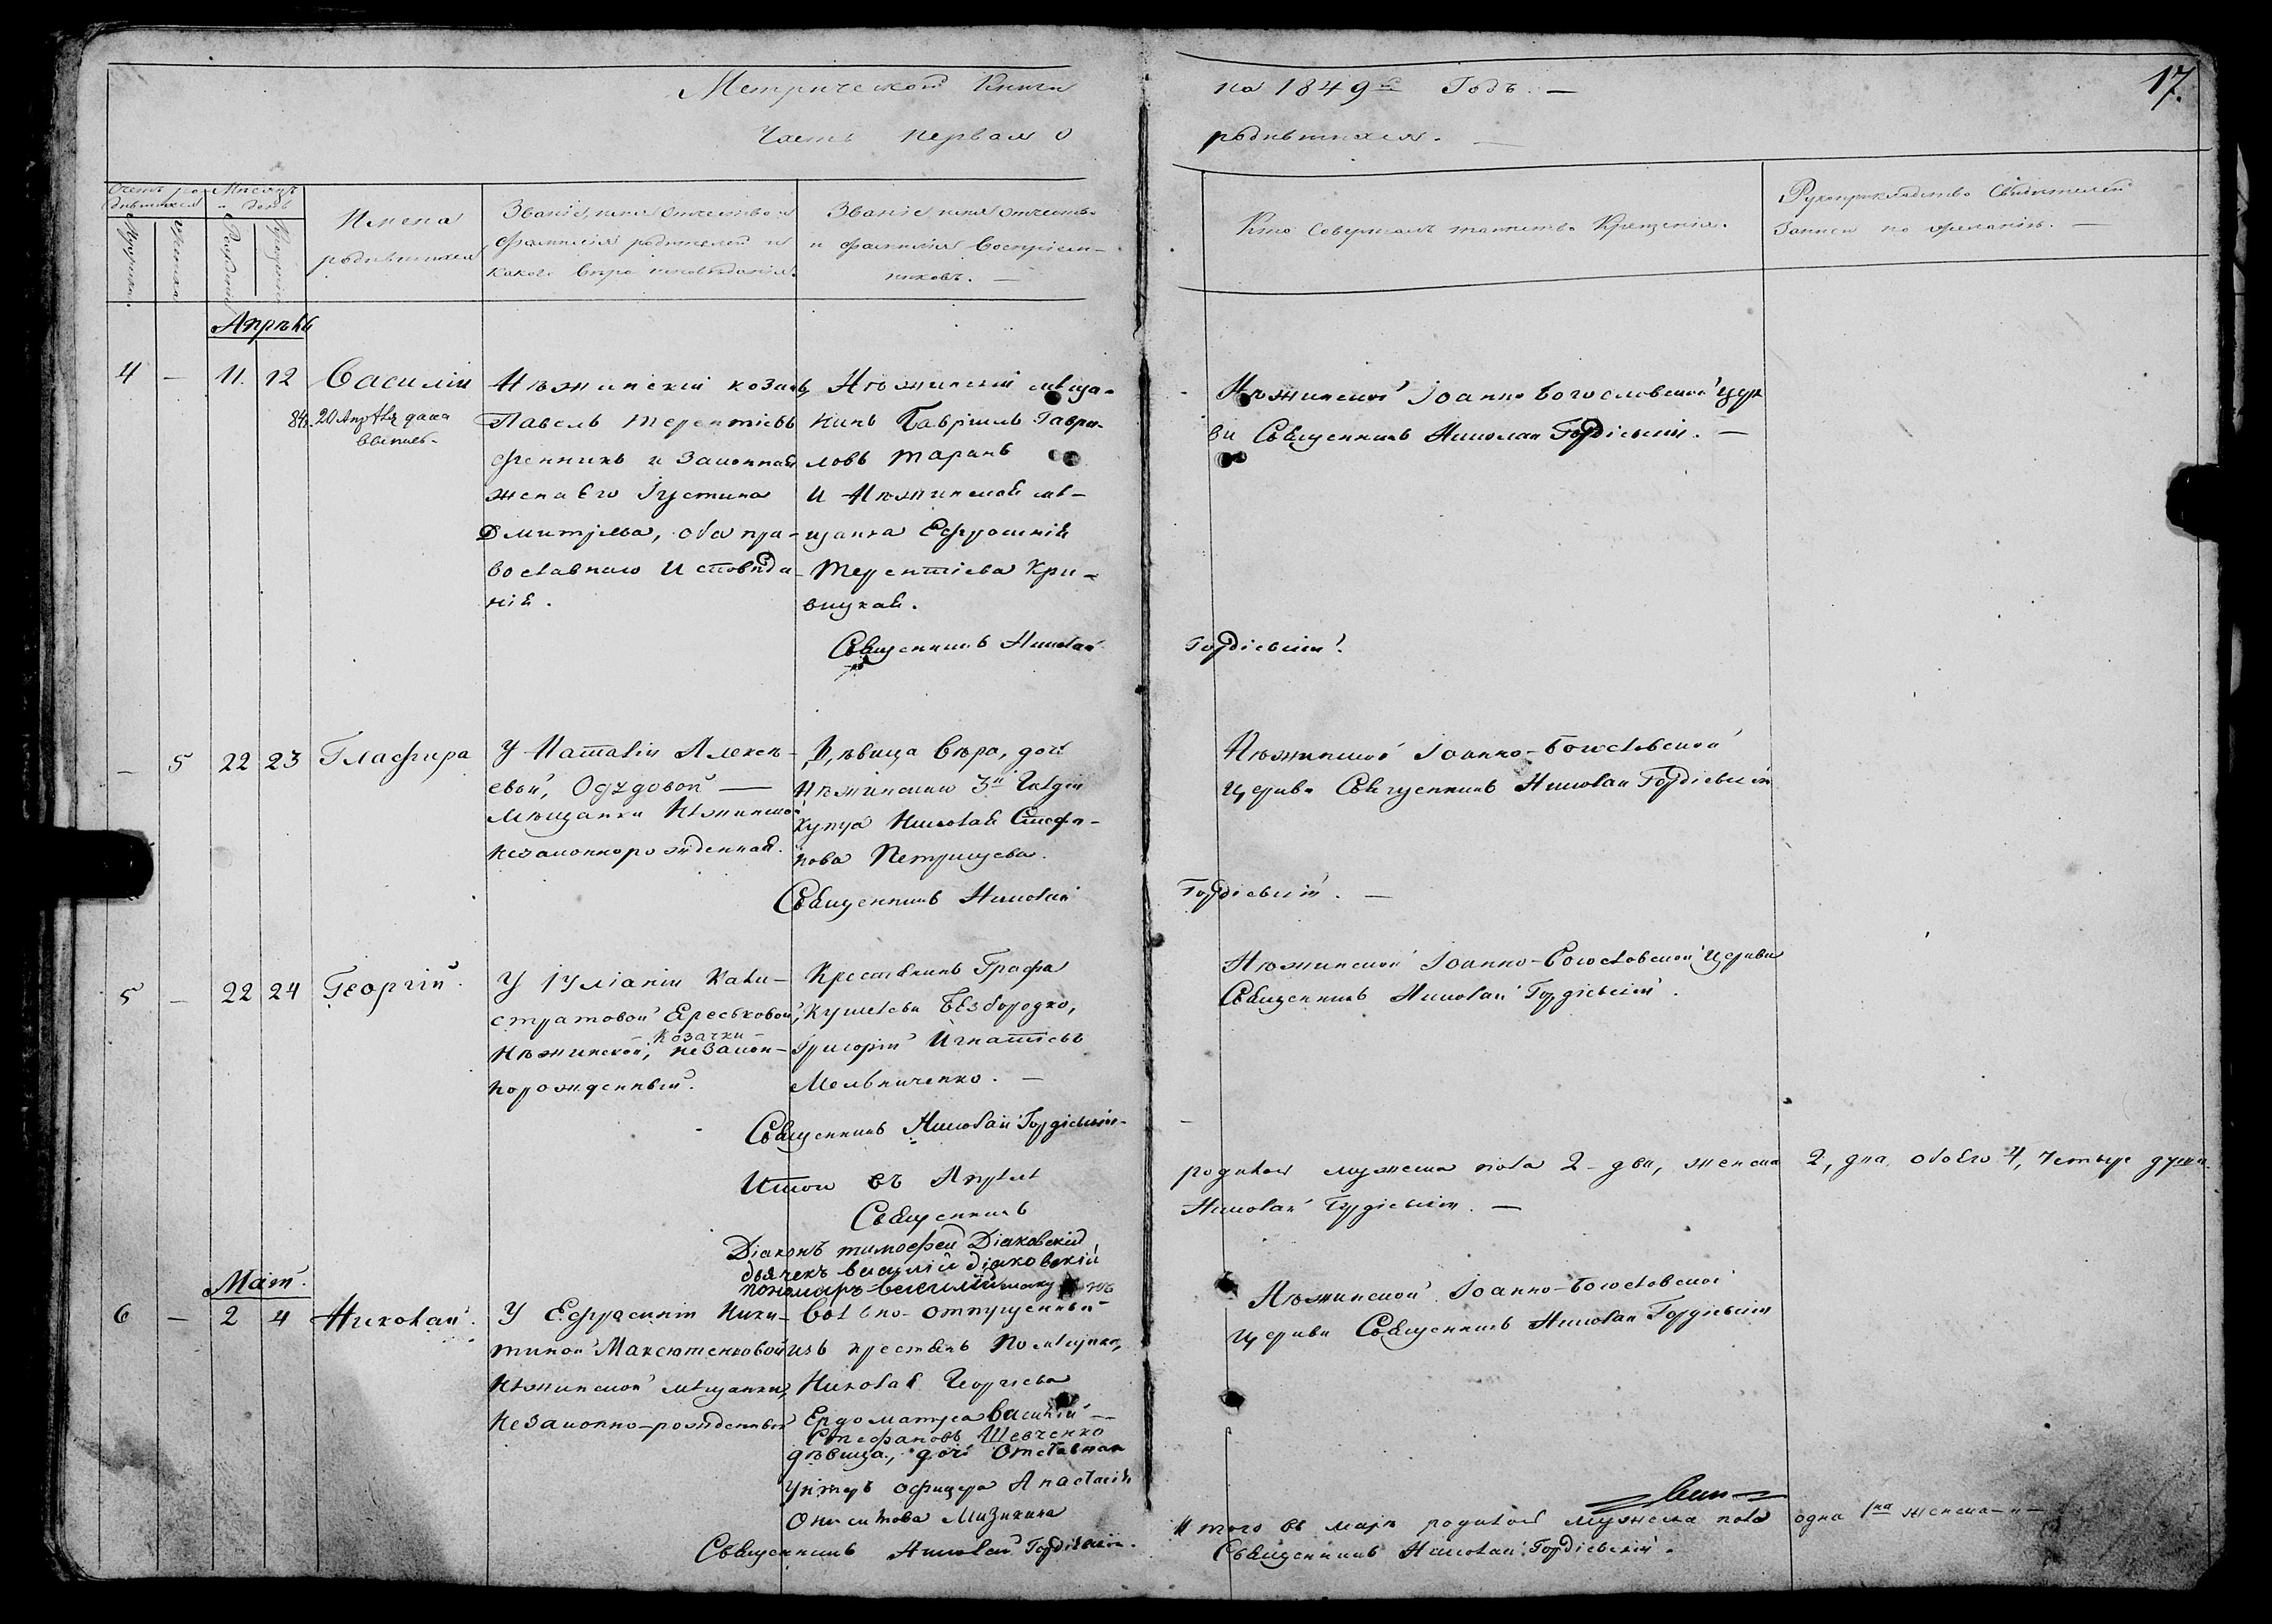 Метрической Книги
на 1849й Годъ. —
17.
Часть первая о
родившихся. —
Счетъ ро-
дившихся
Мужеска
Женска
Месяцъ
и день
Рожденія
Крещенія
Имена
родившихся
Званіе, имя Отчество и
фамилія родителей и
какого вероисповеданія.
Званіе имя отчество
и фамилія Воспріем-
никовъ. —
Кто Совершалъ таинство Крещенія.
Рукоприкладство Свидетелей
Записи по желанію. —
Апрель
4 — 11. 12 Василій
20 Апрля дана
Нежинскій козакъ
Павелъ Терентіевъ
и Законная
жена Его Іустина
Дмитріева, оба пра-
вославнаго Исповеда-
нія.
Нежинскій меща-
нинъ Гавріилъ Гаври-
ловъ Таранъ
и Нежинская ме-
щанка Ефросинія
Терентіева Кри-
вицкая.
Нежинской Іоанно Богословской Церк
ви Священникъ Николай Гордіевскій. —
Священникъ Николай
Гордіевскій.
— 5 22 23 Глафира
У Наталіи Алексе-
евой,
Мещанки Нежинской
незаконнорожденная.
Девица Вера, дочь
Нежинскаго 3й Гильдіи
купца Николая Стефа-
нова Петрищева.
Нежинской Іоанно-Богословской
Церкви Священникъ Николай Гордіевскій
Священникъ Николай
Гордіевскій. —
5 — 22 24 Георгій
У Іуліаніи Кали-
стратовой Ереськовой,
козачки
Нежинской, незакон-
норожденный.
Крестьянинъ Графа
Кушелева Безбородко,
Григорій Игнатіевъ
Мельниченко. —
Нежинской Іоанно-Богословской Церкви
Священникъ Николай Гордіевскій.
Священникъ Николай Гордіевскій —
Итого въ Апреле
родилося мужеска пола 2 - два, женска 2, два, обоего 4, четыре души.
Священникъ
Николай Гордіевскій. —
Діаконъ тимофей Діаковскій
дьячекъ василій діаковскій
пономарь василій
Маій.
6 — 2 4 Николай
У Ефросиніи Ники-
тиной Максютенковой
Нежинской мещанки,
незаконно-рожденный
Вольно-отпущенный
изъ крестьянъ Помещика,
Николая Георгіева
Василій —
Стефановъ Шевченко
девица, дочь Отставнаго
унтеръ офицера Анастасія
Онисимова Мизикина
Нежинской Іоанно-Богословской
Церкви Священникъ Николай Гордіевскій
Священникъ Николай Гордіевскій.
Итого въ родилось Мужеска пола одна 1на женска — н —
Священникъ Николай Гордіевскій.